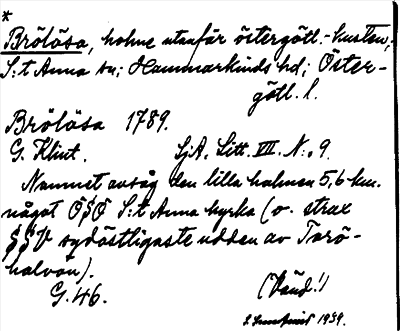 *
Brölösa, holme utanför östergötl.-kusten,
S:t Anna sn; Hammarkinds hd; Öster-
götl. l.
Brölösa 1789.
G. Klint. SjA. Litt. VII. N:o 9.
Namnet avsåg den lilla holmen 5,6 km.
något OSO S:t Anna kyrka (o. strax
SSV sydöstligaste udden av Torö-
halvön).
G. 46. (Vänd!)
1939.